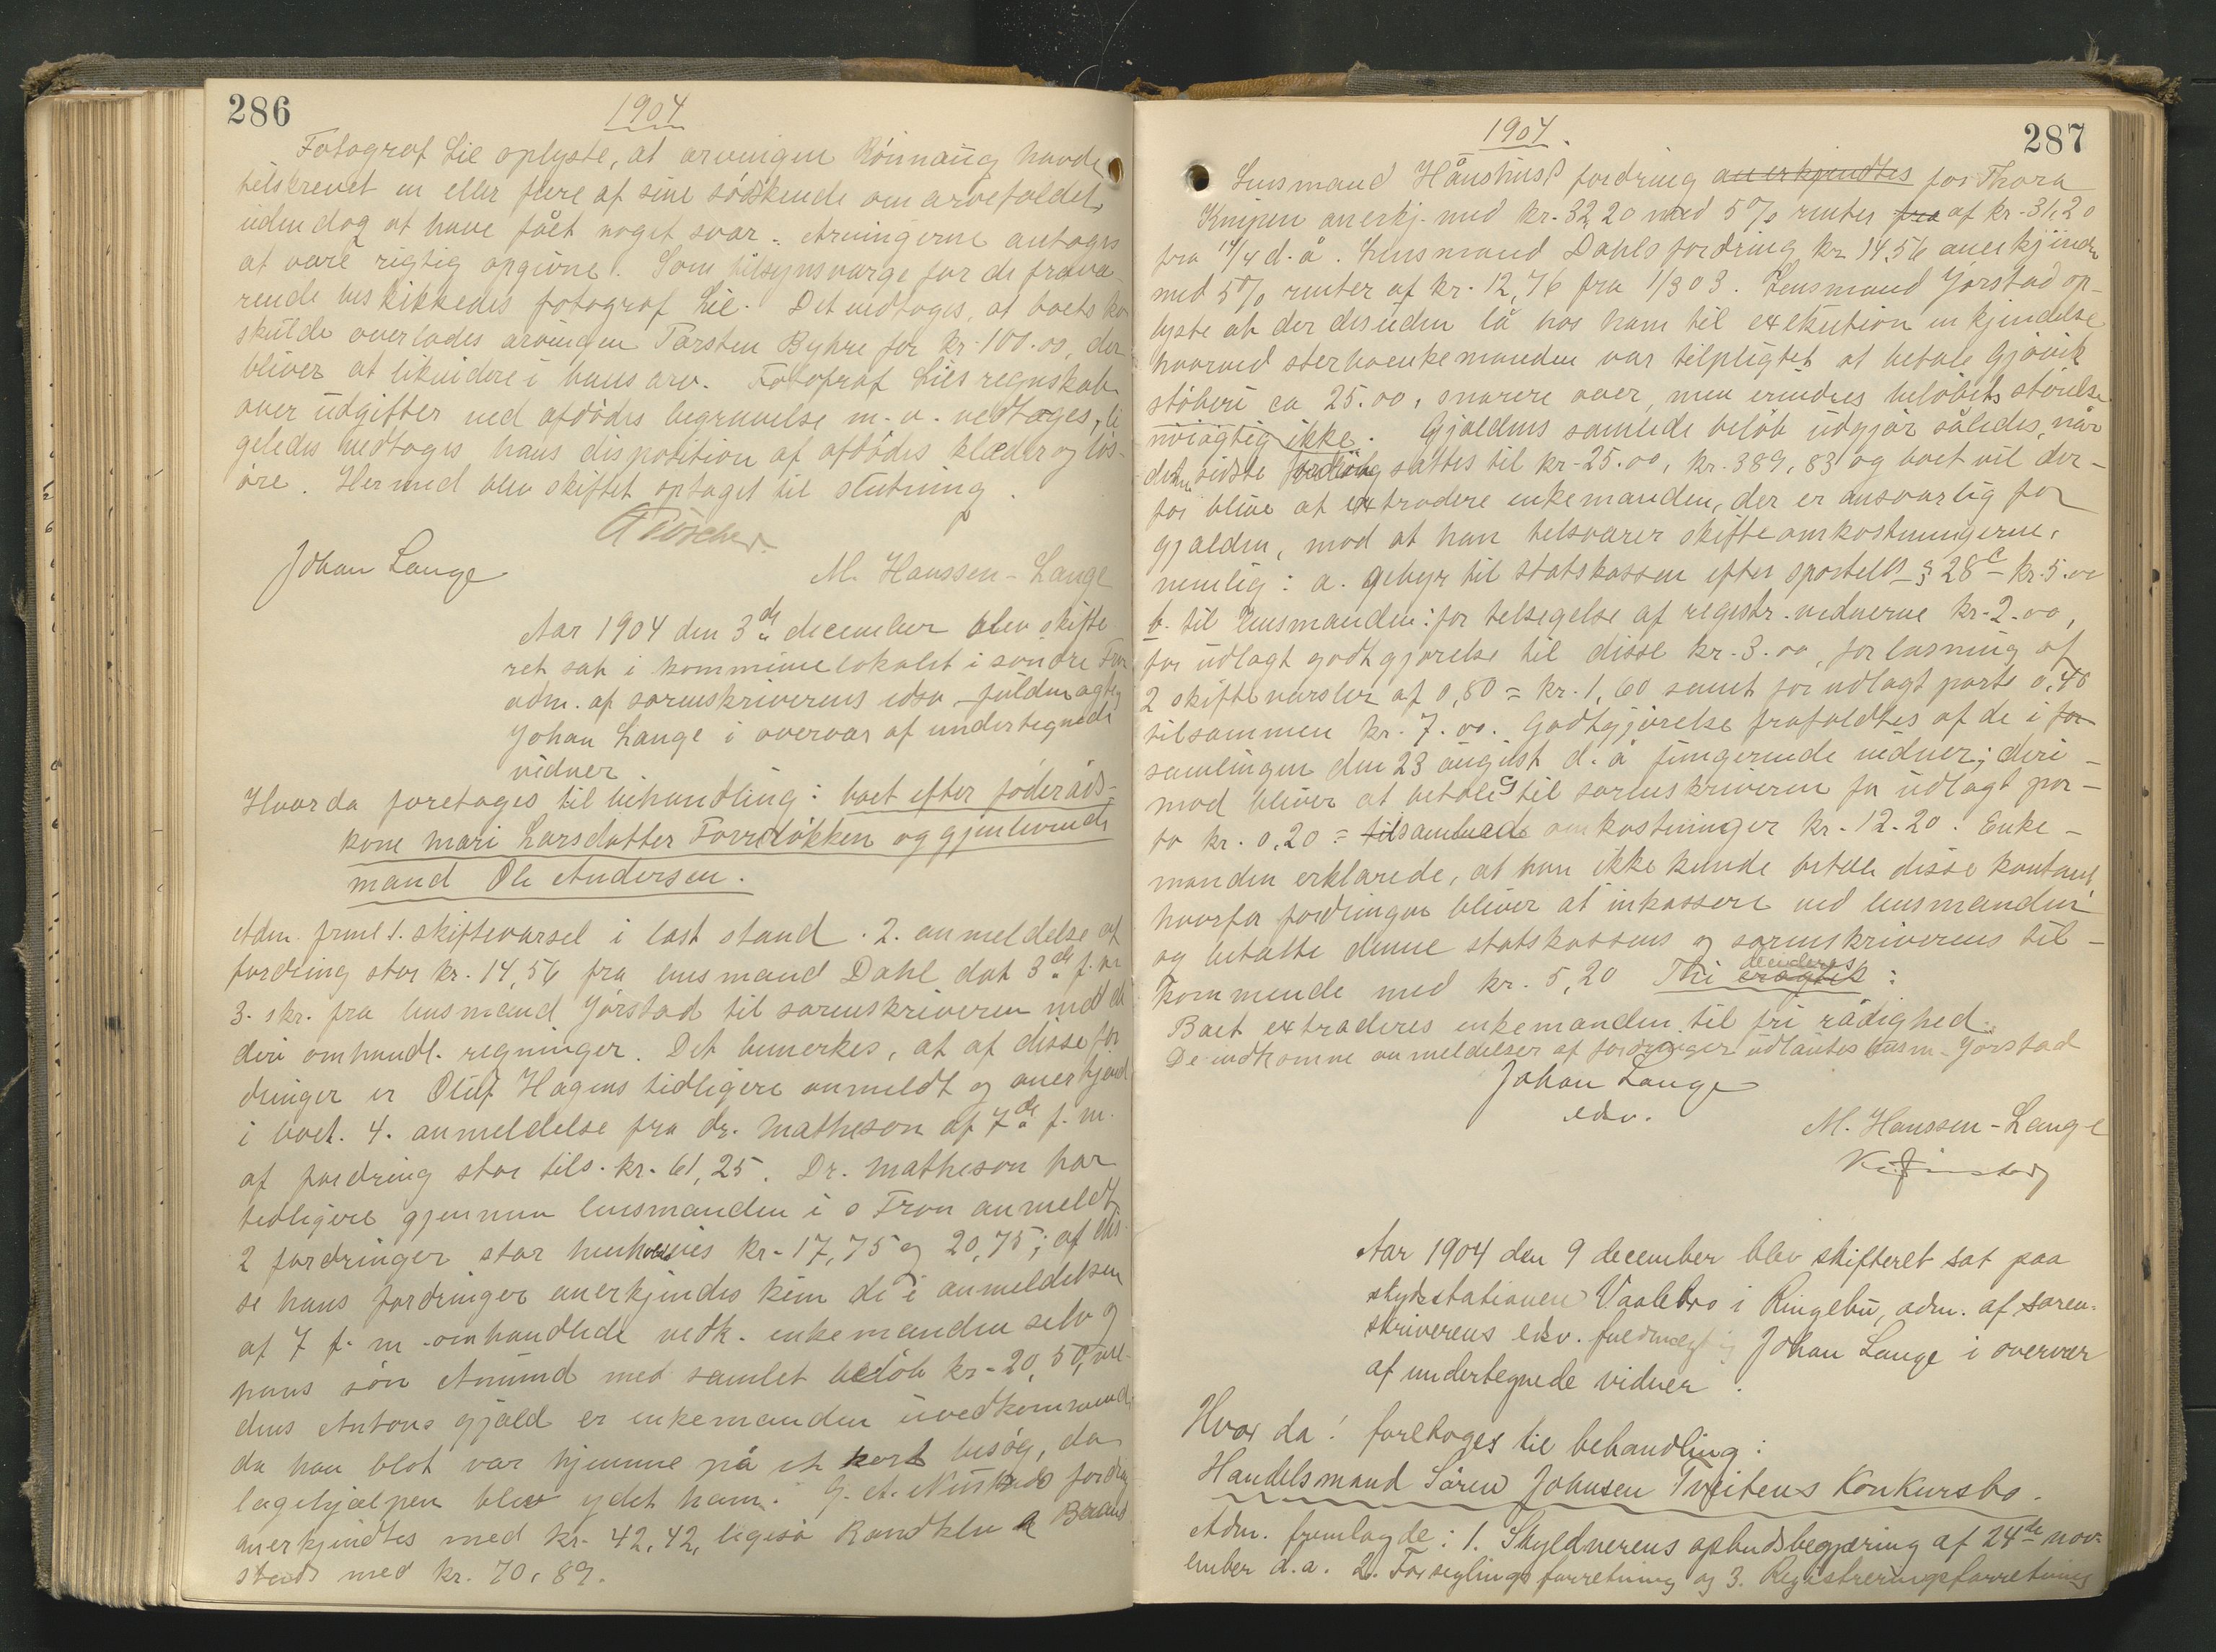 286
1904
Fotograf Lie oplyste, at arvingen Rönnaug havde
tilskrevet en eller flere af sine södskende om arvefaldet,
uden dog at have fået noget svar. Arvingerne antoges
at være rigtig opgivne. Som tilsynsværge for de fravæ-
rende beskikkedes fotograf Lie. Det vedtoges, at boets ko
skulde overlades arvingen Torsten Byhre for kr. 100.00, der
bliver at likvidere i hans arv. Fotograf Lies regnskab
over udgifter ved afdödes begravelse m.v. vedtoges, li
geledes vedtoges hans disposition af afdödes klæder og lös-
öre. Hermed blev skiftet optaget til slutning.
Johan Lange
M. Hanssen-Lange
Aar 1904 den 3de december blev skifte
ret sat i kommunelokalet i söndre Fron
adm. af sorenskriverens edsv. fuldmægtig
Johan Lange i overvær af undertegnede
vidner
Hvor da foretoges til behandling: boet efter föderåds-
kone Mari Larsdatter Forrlökken og gjenlevende
mand Ole Andersen.
Adm. freml. 1. skiftevarsel i læst stand. 2. anmeldelse af
fordring stor kr. 14,56 fra lensmand Dahl dat 3de f. m
3. skr. fra lensmand Jörstad til sorenskriveren med de
deri omhandl. regninger. Det bemerkes, at af disse for
dringer er Oluf Hagens tidligere anmeldt og anerkjendt
i boet. 4. anmeldelse fra dr. Matheson af 7de f. m.
af fordring stor tils. kr. 61,25. Dr. Matheson har
tidligere gjennem lensmanden i s Fron anmeldt
2 fordringer stor henholdsvis kr. 17,75 og 20,75; af dis
se hans fordringer anerkjendes kun de i anmeldelsen
af 7 f. m. omhandlede vedk. enkemanden selv og
hans sön Amund med samlet belöb kr. 20,50, me
dens Antons gjæld er enkemanden uvedkommende
da han blot var hjemme på et kort besög, da
lægehjælpen blev ydet ham. G. A. fordring
anerkjendtes med kr. 42,42, ligeså
stads med kr. 70,89.
287
1904.
Lensmand Hånshus's fordring anerkjendtes for Thora
Knipen anerkj. med kr. 32,20 med 5% renter fra af kr. 31,20
fra 14/4 d. å. Lensmand Dahls fordring kr. 14,56 anerkjendes
med 5% renter af kr. 12,76 fra 1/3 03. Lensmand Jörstad op-
lyste at der desuden lå hos ham til exekution en kjendelse
hvorved sterboenkemanden var tilpligtet at betale Gjövik
stöberi ca 25.00, snarere over, men erindres belöbets störelse
nöiagtig ikke. Gjældens samlede belöb udgjör således, når
denne sidste fordring sættes til kr. 25.00, kr. 389,83 og boet vil der-
for blive at extradere enkemanden, der er ansvarlig for
gjælden, mod at han tilsvarer skifteomkostningerne,
nemlig: a. gebyr til statskassen efter sportell. § 28 c kr. 5.00
b. til lensmanden: for tilsigelse af registr. vidnerne kr. 2.00,
for udlagt godtgjörelse til disse kr. 3.00, for læsning af
2 skiftevarsler af 0,80 = kr. 1,60 samt for udlagt porto 0,40
tilsammen kr. 7.00. Godtgjörelse frafaldtes af de i for
samlingen den 23 august d. å fungerende vidner; deri-
mod bliver at betales til sorenskriveren for udlagt por-
to kr. 0,20 = tilsammen omkostninger kr. 12.20. Enke-
manden erklærede, at han ikke kunde betale disse kontant,
hvorfor fordringen bliver at inkassere ved lensmanden
og betalte denne statskassens og sorenskriverens til-
kommende med kr. 5,20 Thi eragtes decideres:
Boet extraderes enkemanden til fri rådighed.
De indkomne anmeldelser af fordringer udlåntes lensm. Jörstad
Johan Lange
edsv.
M. Hanssen-Lange
Aar 1904 den 9 december blev skifteret sat paa
skydsstationen Vaalebro i Ringebu, adm. af soren-
skriverens edsv. fuldmægtig Johan Lange i overvær
af undertegnede vidner.
Hvor da! foretoges til behandling:
Handelsmand Sören Johnsen Tveitens Konkursbo.
Adm. fremlagde: 1. Skyldnerens opbudsbegjæring af 24de nov-
ember d.a. 2. Forseglingsforretning og 3. Registreringsforretning